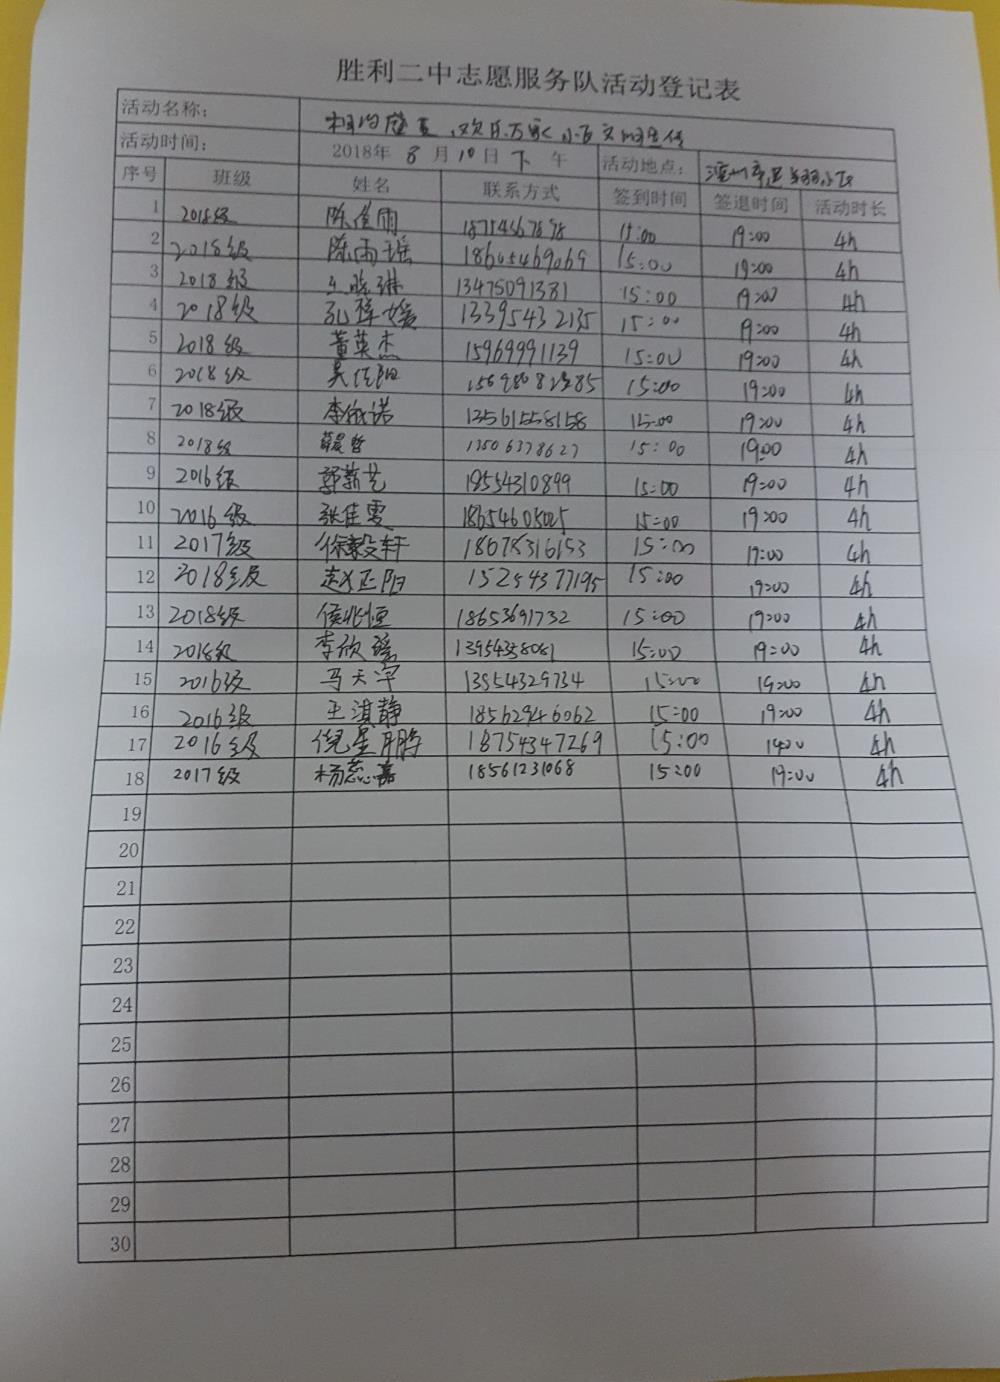 胜利二中志愿服务队活动登记表
活动名称： 相约盛夏、欢乐万家 小区文明宣传
活动时间： 2018年 8 月 10 日 下 午 活动地点： 小区
序号 班级 姓名 联系方式 签到时间 签退时间 活动时长
1 2018级 陈佳雨 15:00 19:00 4h
2 2018级 陈雨瑶 18605469069 15:00 19:00 4h
3 2018级 王晓琳 13475091381 15:00 19:00 4h
4 2018级 孔梓媛 13395432135 15:00 19:00 4h
5 2018级 董英杰 15969991139 15:00 19:00 4h
6 2018级 吴佳阳 15:00 19:00 4h
7 2018级 李依诺 13561558158 15:00 19:00 4h
8 2018级 薛晨哲 13506378627 15:00 19:00 4h
9 2016级 郭薪艺 18554310899 15:00 19:00 4h
10 2016级 张佳雯 18654605025 15:00 19:00 4h
11 2017级 徐毅轩 18678316153 15:00 19:00 4h
12 2018级 赵正阳 15254377195 15:00 19:00 4h
13 2018级 侯兆恒 18653691732 15:00 19:00 4h
14 2018级 李欣瑶 13954338081 15:00 19:00 4h
15 2016级 马天宇 13954329734 15:00 19:00 4h
16 2016级 王淇静 18562946062 15:00 19:00 4h
17 2016级 倪星鹏 18754347269 15:00 4h
18 2017级 杨蕊嘉 18561231068 15:00 19:00 4h
19
20
21
22
23
24
25
26
27
28
29
30